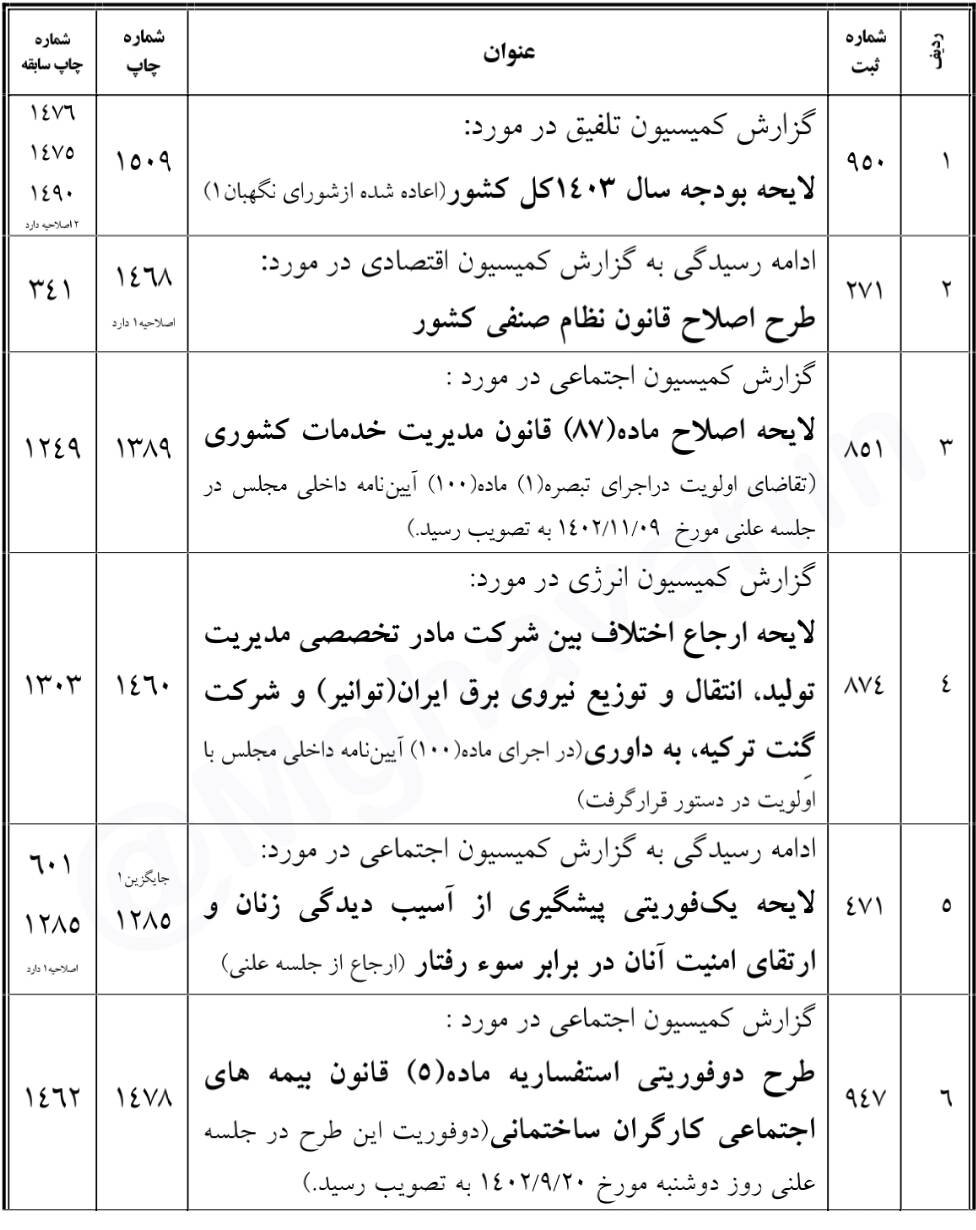 ردیف
شماره
ثبت
عنوان
شماره
چاپ
شماره
چاپ سابقه
١
٩٥٠
گزارش کمیسیون تلفیق در مورد:
لایحه بودجه سال ١٤٠٣کل کشور(اعاده شده ازشورای نگهبان١)
١٥٠٩
١٤٧٦
١٤٧٥
١٤٩٠
٢ اصلاحیه دارد
٢
٢٧١
ادامه رسیدگی به گزارش کمیسیون اقتصادی در مورد:
طرح اصلاح قانون نظام صنفی کشور
١٤٦٨
اصلاحیه١ دارد
٣٤١
٣
٨٥١
گزارش کمیسیون اجتماعی در مورد :
لایحه اصلاح ماده(٨٧) قانون مدیریت خدمات کشوری
(تقاضای اولویت دراجرای تبصره(١) ماده(١٠٠) آیین‌نامه داخلی مجلس در
جلسه علنی مورخ ١٤٠٢/١١/٠٩ به تصویب رسید.)
١٣٨٩
١٢٤٩
٤
٨٧٤
گزارش کمیسیون انرژی در مورد:
لایحه ارجاع اختلاف بین شرکت مادر تخصصی مدیریت
تولید، انتقال و توزیع نیروی برق ایران(توانیر) و شرکت
گنت ترکیه، به داوری(در اجرای ماده(١٠٠) آیین‌نامه داخلی مجلس با
اولویت در دستور قرارگرفت)
١٤٦٠
١٣٠٣
٥
٤٧١
ادامه رسیدگی به گزارش کمیسیون اجتماعی در مورد:
لایحه یک‌فوریتی پیشگیری از آسیب دیدگی زنان و
ارتقای امنیت آنان در برابر سوء رفتار (ارجاع از جلسه علنی)
جایگزین١
١٢٨٥
٦٠١
١٢٨٥
اصلاحیه١ دارد
٦
٩٤٧
گزارش کمیسیون اجتماعی در مورد :
طرح دوفوریتی استفساریه ماده(٥) قانون بیمه های
اجتماعی کارگران ساختمانی(دوفوریت این طرح در جلسه
علنی روز دوشنبه مورخ ١٤٠٢/٩/٢٠ به تصویب رسید.)
١٤٧٨
١٤٦٢
@Mghavanin